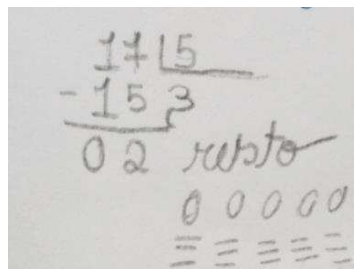 17 5
- 15 3
02 resto
0 0 0 0 0